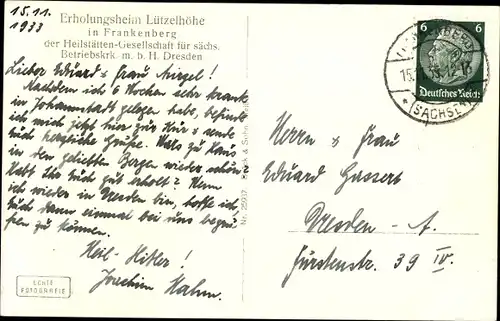 15.11.
1933
Erholungsheim Lützelhöhe
in Frankenberg
der Heilstätten-Gesellschaft für sächs.
Betriebskrk. m. b. H. Dresden
Lieber Eduard u. Frau
Nachdem ich 6 Wochen sehr krank
in Johannstadt gelegen habe, befinde
ich mich jetzt hier zur Kur u. sende
Euch herzliche Grüße. War's zu Haus
in den geliebten Bergen wieder schön
Habt Ihr Euch gut erholt? Wenn
ich wieder in Dresden bin, hoffe ich
Euch dann einmal bei uns begrü-
ßen zu können.
Heil-Hitler!
Joachim Hahn.
ECHTE
FOTOGRAFIE
Nr. 25937 & Sohn
6 6
Deutsches Reich
15.
(SACHSEN)
Herrn u. Frau
Eduard Gassert
Dresden-A.
Fürstenstr. 39 IV.